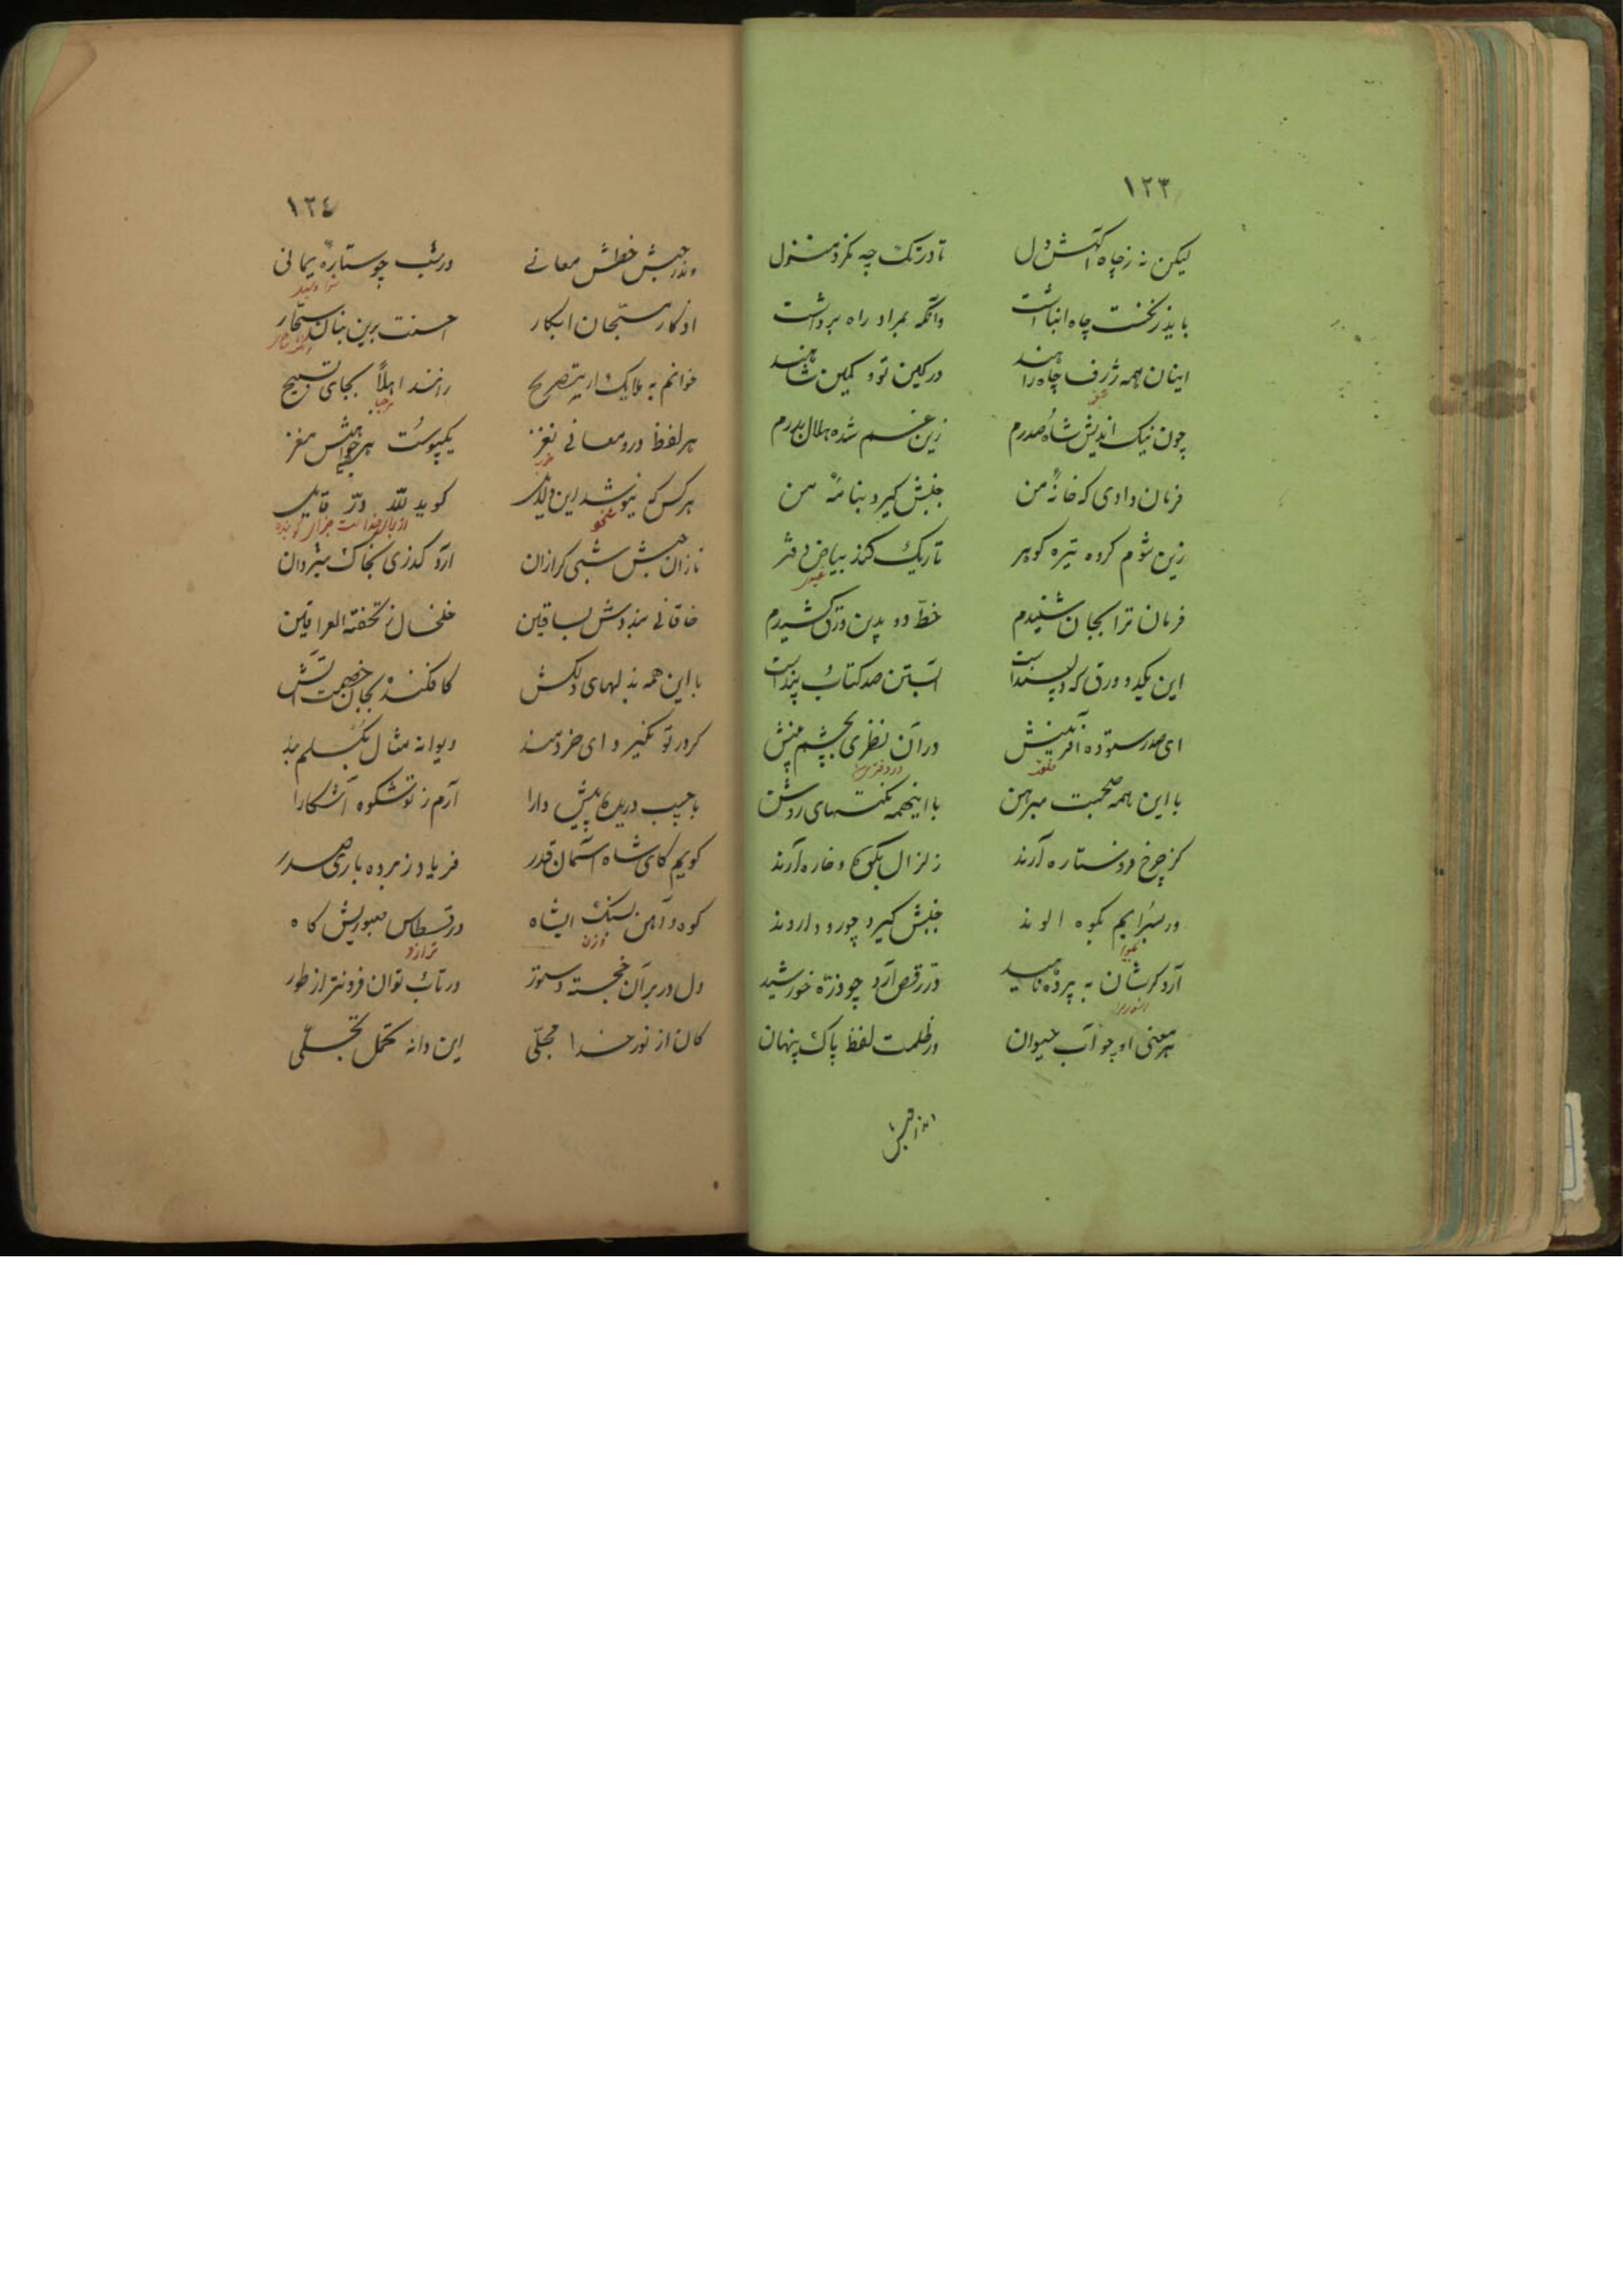 ١٢٣
لیکن نه ز چاه آتش دل تا در تک چه نکرد منزل
باید ز نخست چاه انباشت وانگه بمراد راه برداشت
اینان همه ژرف چاه راهند در کین تو و کمین شاهند
عمق
چون نیک اندیش شاه صدرم زین غم شده هلال بدرم
فرمان دادی که خانهٔ من جنبش گیرد بنامهٔ من
زین شوم کرده تیره گوهر تاریک کند بیاض دفتر
فرمان ترا بجان شنیدم خطّ دو بدین ورق کشیدم
این یکدو ورق که دلپسنداست آبستن صد کتاب پنداست
ای صدر ستوده آفرینش در آن نظری بچشم بینش
با این همه صحبت مبرهن با اینهمه نکتهای روشن
کز چرخ فرو ستاره آرند زلزال بکوه و خاره آرند
ور بسرایم بکوه الوند جنبش گیرد چو رود اروند
آرد کرشان به پرده ناهید در رقص آرد چو ذره خورشید
هر معنی او چو آب حیوان در ظلمت لفظ پاک پنهان
١٢٤
واندر حبش خطش معانی در شب چو ستارهٔ یمانی
اذکار مسبّحان ابکار احسنت برین بنات اسحار
خوانم به ملایک ار بتصریح رانند اهلاً بجای تسبیح
مرحبا
هر لفظ درو معانی نغز یکپوست هر خواهش مغز
هر کس که نیوشد این دلایل گوید لله درّ قایل
نازان حبش شبی گرازان آرد گذری بخاک شروان
خاقانی بنددش بساقین خلخال ز تحفة العراقین
با این همه بذلهای دلکش کافکند بجان خصمت آتش
گر در تو نگیرد ای خردمند دیوانه مثال بگسلم بند
با جیب دریده پیش دارا آرم ز تو شکوه آشکارا
گویم کای شاه آسمان قدر فریاد ز بردباری صدر
کوه و آهن بسنگ ایشاه در قسطاس صبوریش کاه
وزن
ترازو
دل در بر آن خجسته دستور در تاب توان فزونتر از طور
کان از نور خدا مجلّی این دانه تحمل تجلّی